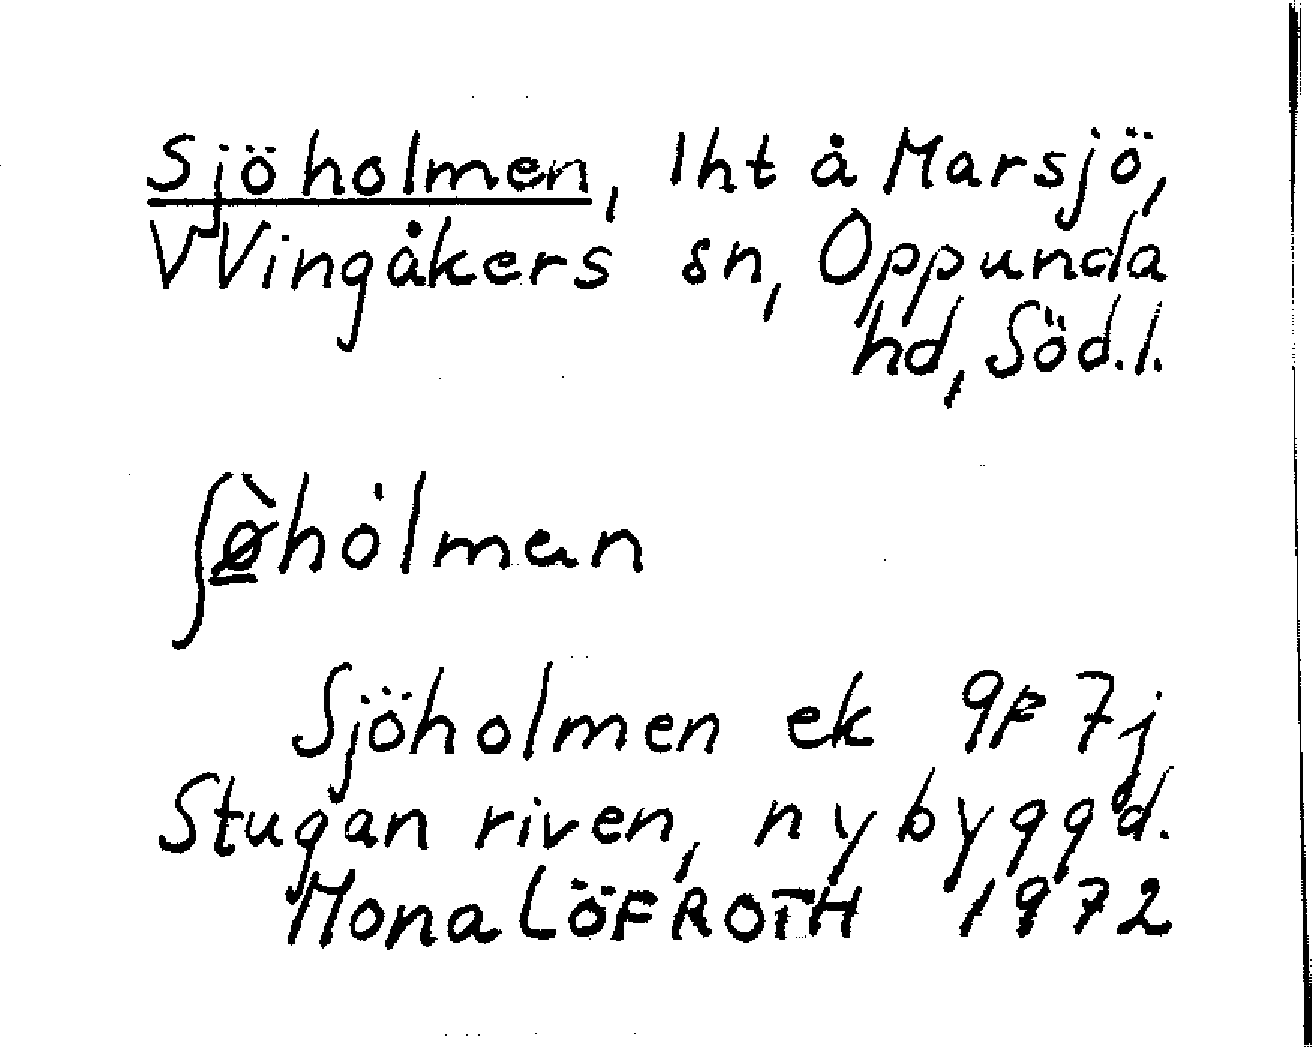 Sjöholmen, lht å Marsjö,
V Vingåkers sn, Oppunda
hd, Söd.l.
ʃø̀hȯlman
Sjöholmen ek 9F 7j
Stugan riven, nybyggd.
Mona LÖFROTH 1972